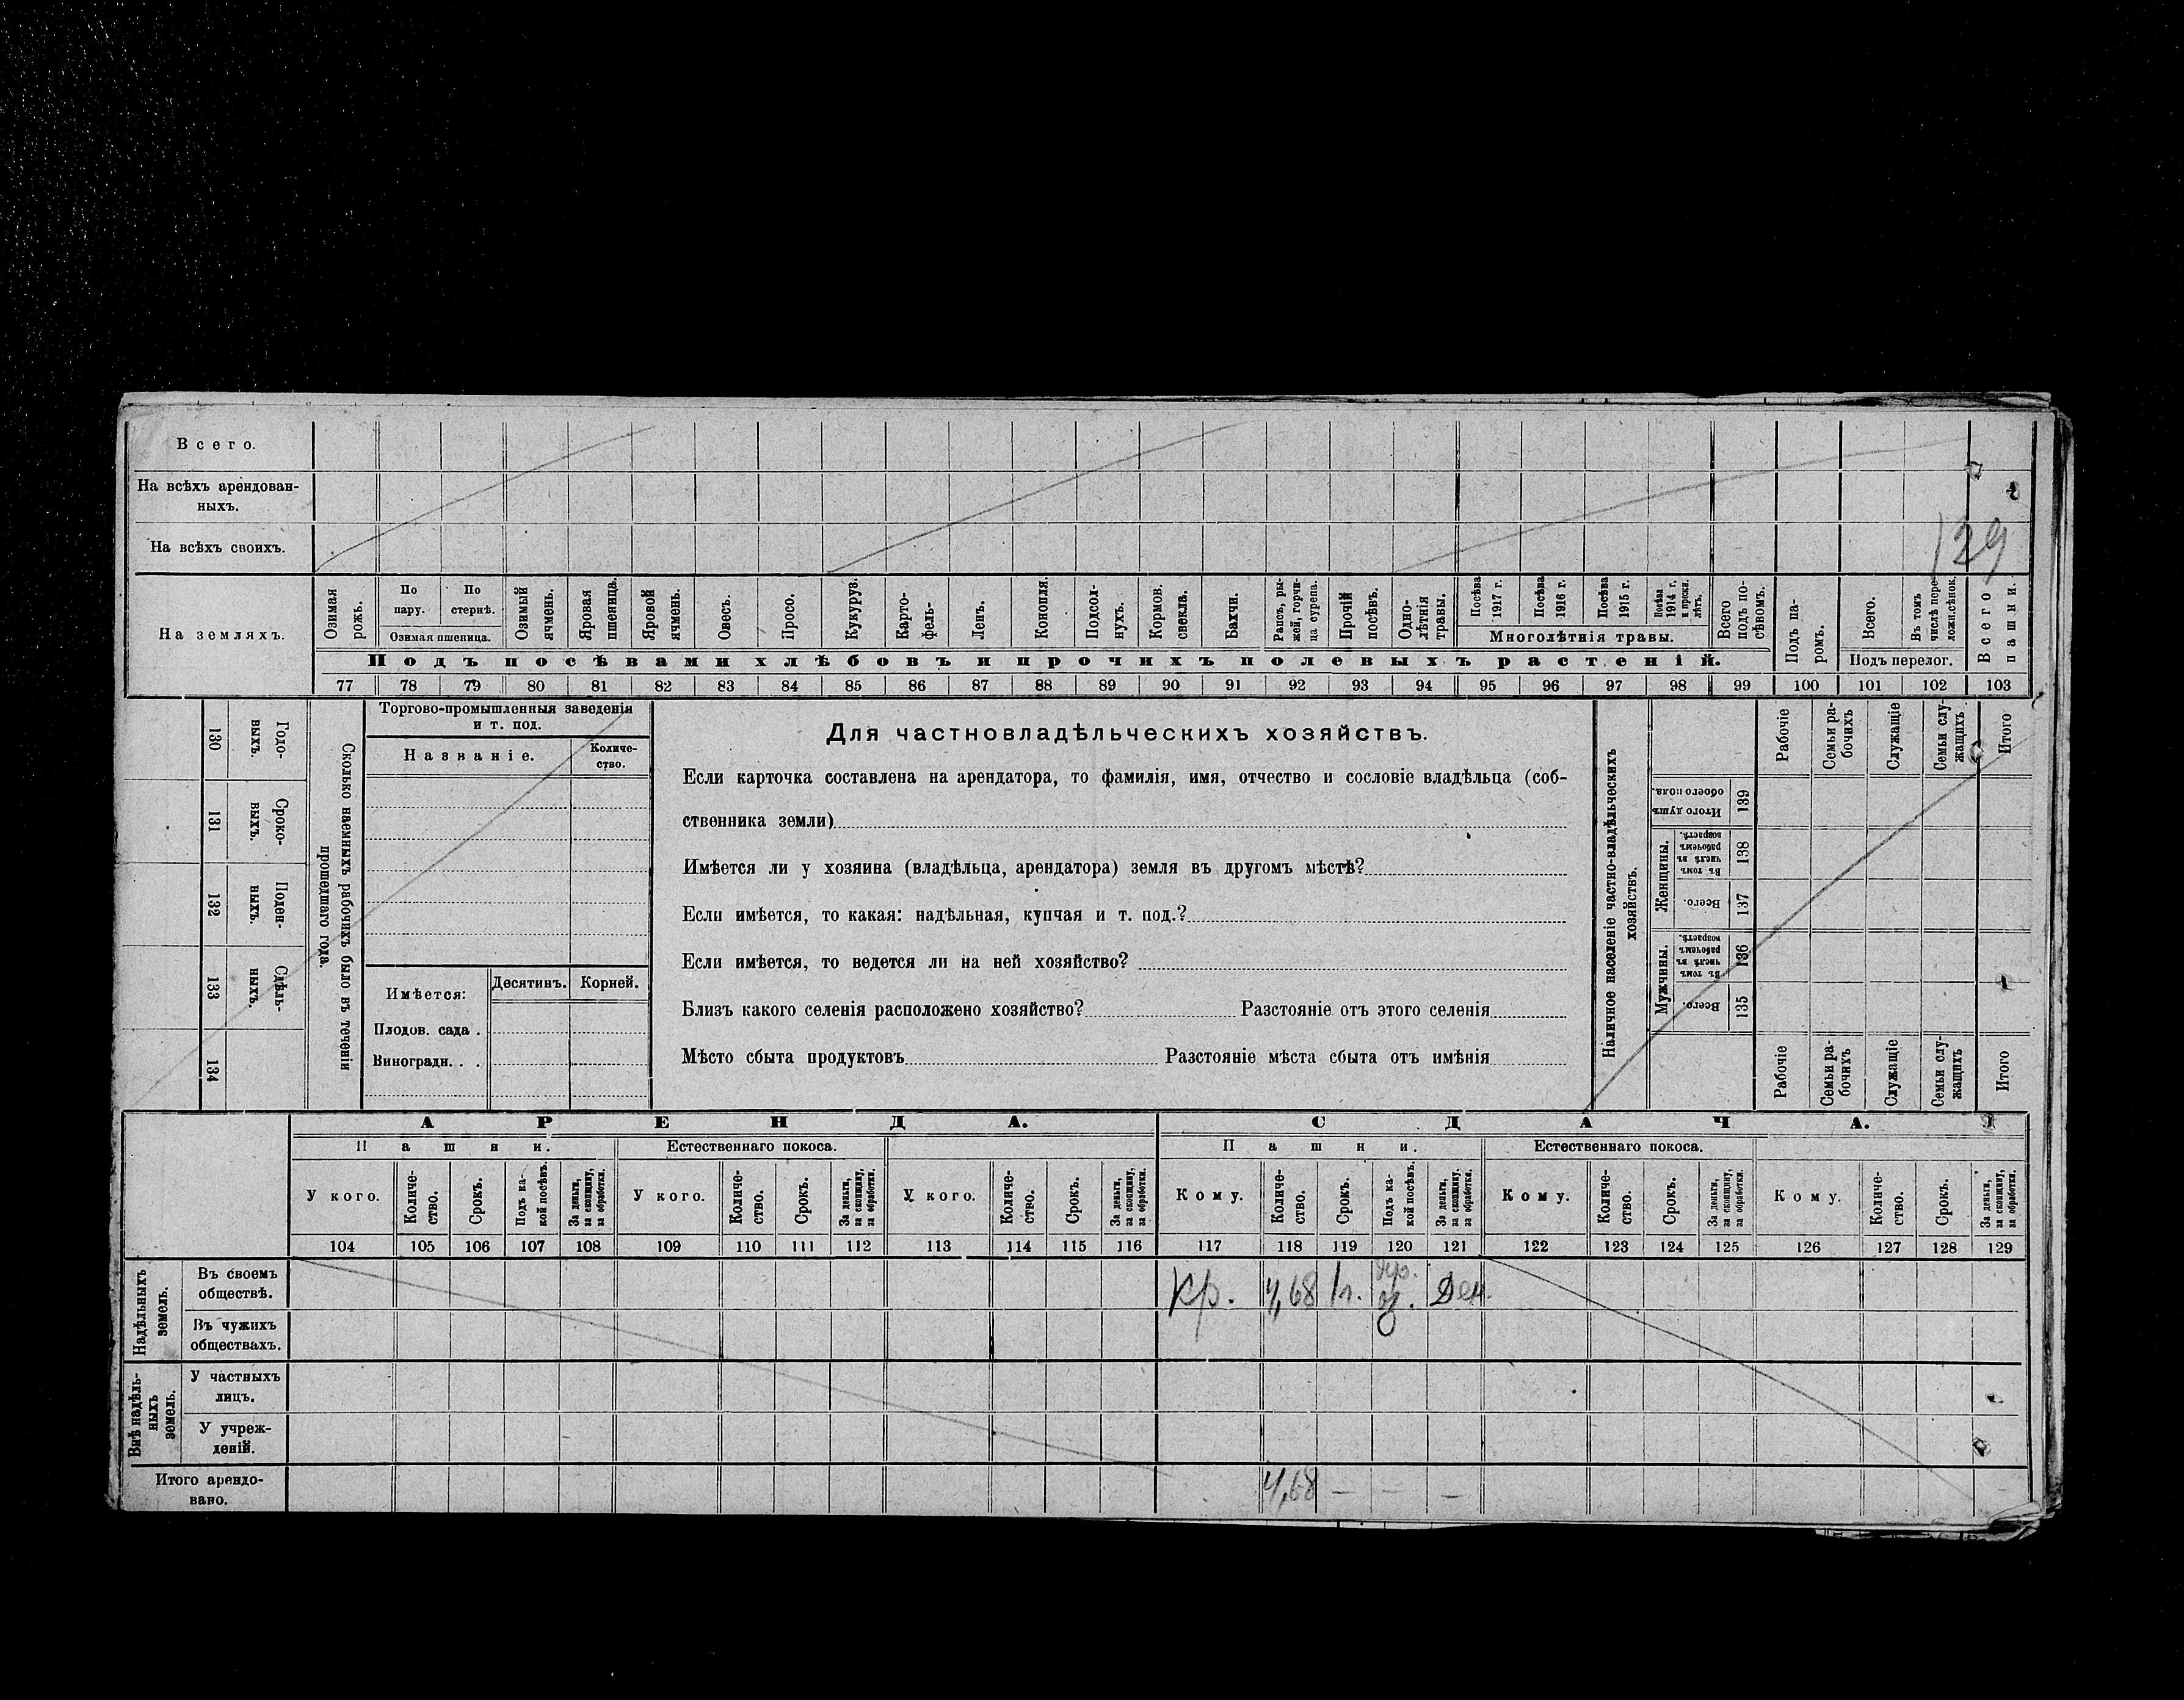 Всего.
На всѣхъ арендован-
ныхъ.
На всѣхъ своихъ.
129
На земляхъ.
Озимая рожь.
По пару.
По стернѣ.
Озимая пшеница.
Озимый ячмень.
Яровая пшеница.
Яровой ячмень.
Овесъ.
Просо.
Кукуруз.
Карто-
фель-
Ленъ.
Конопля.
Подсол-
нухъ.
Кормов. свекла.
Бахчи.
Рапсъ, ры-
жей, горчи-
ца сурепа.
Прочій посѣвъ.
Одно-
лѣтнія травы.
Посѣва 1917 г.
Посѣва 1916 г.
Посѣва 1915 г.
Посѣва 1914 г. и прежн. лѣтъ.
Многолѣтнія травы.
Всего подъ по-
сѣвомъ.
Подъ па-
ромъ.
Всего.
Въ томъ числѣ пере-
ложн.сѣнок.
Подъ перелог.
Всего пашни.
Подъ посѣвами хлѣбовъ и прочихъ полевыхъ растеній.
77 78 79 80 81 82 83 84 85 86 87 88 89 90 91 92 93 94 95 96 97 98 99 100 101 102 103
130 Годо-
выхъ.
131 Сроко-
выхъ.
132 Поден-
ныхъ.
133 Сдѣль-
ныхъ.
134
Сколько наемныхъ рабочихъ было въ теченіи
прошедшаго года.
Торгово-промышленныя заведенія
и т. под.
Названіе.
Количе-
ство.
Имѣется:
Десятинъ.
Корней.
Плодов. сада .
Виноградн. . .
Для частновладѣльческихъ хозяйствъ.
Если карточка составлена на арендатора, то фамилія, имя, отчество и сословіе владѣльца (соб-
ственника земли)
Имѣется ли у хозяина (владѣльца, арендатора) земля въ другомъ мѣстѣ?
Если имѣется, то какая: надѣльная, купчая и т. под.?
Если имѣется, то ведется ли на ней хозяйство?
Близъ какого селенія расположено хозяйство? Разстояніе отъ этого селенія
Мѣсто сбыта продуктовъ Разстояніе мѣста сбыта отъ имѣнія
Наличное населеніе частно-владѣльческихъ
хозяйствъ.
Рабочіе
Семьи ра-
бочихъ
Служащіе
Семьи слу-
жащихъ
Итого
Итого душъ обоего пола. 139
Женщины.
Въ томъ числѣ въ рабочемъ возрастѣ. 138
Всего. 137
Мужчины.
Въ томъ числѣ въ рабочемъ возрастѣ. 136
Всего. 135
Рабочіе
Семьи ра-
бочихъ
Служащіе
Семьи слу-
жащихъ
Итого
АРЕНДА.
СДАЧА.
Пашни.
Естественнаго покоса.
Пашни.
Естественнаго покоса.
У кого.
Количе-
ство.
Срокъ.
Подъ ка-
кой посѣвъ.
За деньги, за скопщину, за обработки.
У кого.
Количе-
ство.
Срокъ.
За деньги, за скопщину, за обработки.
У кого.
Количе-
ство.
Срокъ.
За деньги, за скопщину, за обработки.
Кому.
Количе-
ство.
Срокъ.
Подъ ка-
кой посѣвъ.
За деньги, за скопщину, за обработки.
Кому.
Количе-
ство.
Срокъ.
За деньги, за скопщину, за обработки.
Кому.
Количе-
ство.
Срокъ.
За деньги, за скопщину, за обработки.
104 105 106 107 108 109 110 111 112 113 114 115 116 117 118 119 120 121 122 123 124 125 126 127 128 129
Надѣльныхъ
земель.
Въ своемъ
обществѣ.
Кр. 4,68 1г. оз. Ден.
Въ чужихъ
обществахъ.
Внѣ надѣль-
ныхъ
земель.
У частныхъ
лицъ.
У учреж-
деній.
Итого арендо-
вано.
4,68 — — —